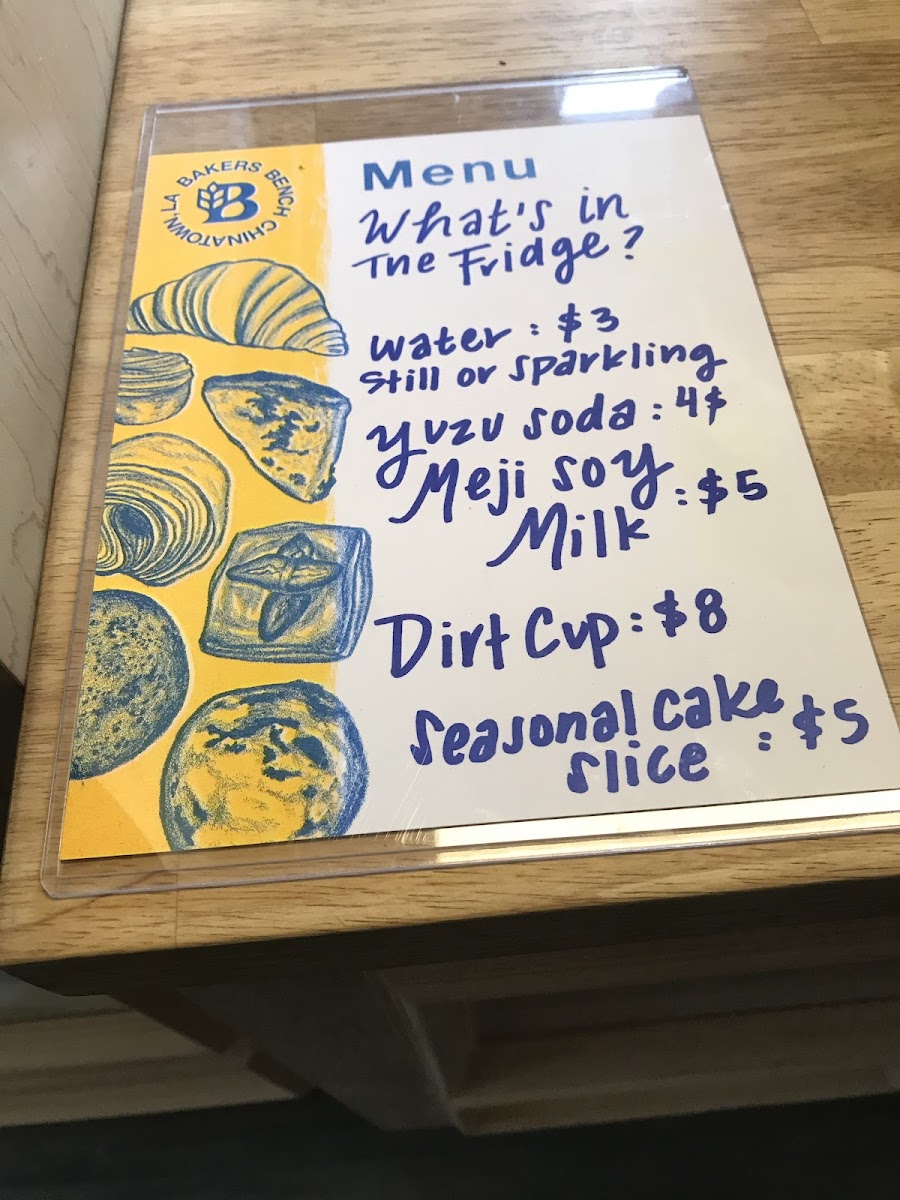 BAKERS BENCH CHINATOWN, LA
B
Menu
What's in
The Fridge?
water : $3
still or sparkling
yuzu soda : 4$
Meji soy
Milk : $5
Dirt Cup : $8
seasonal cake
slice : $5